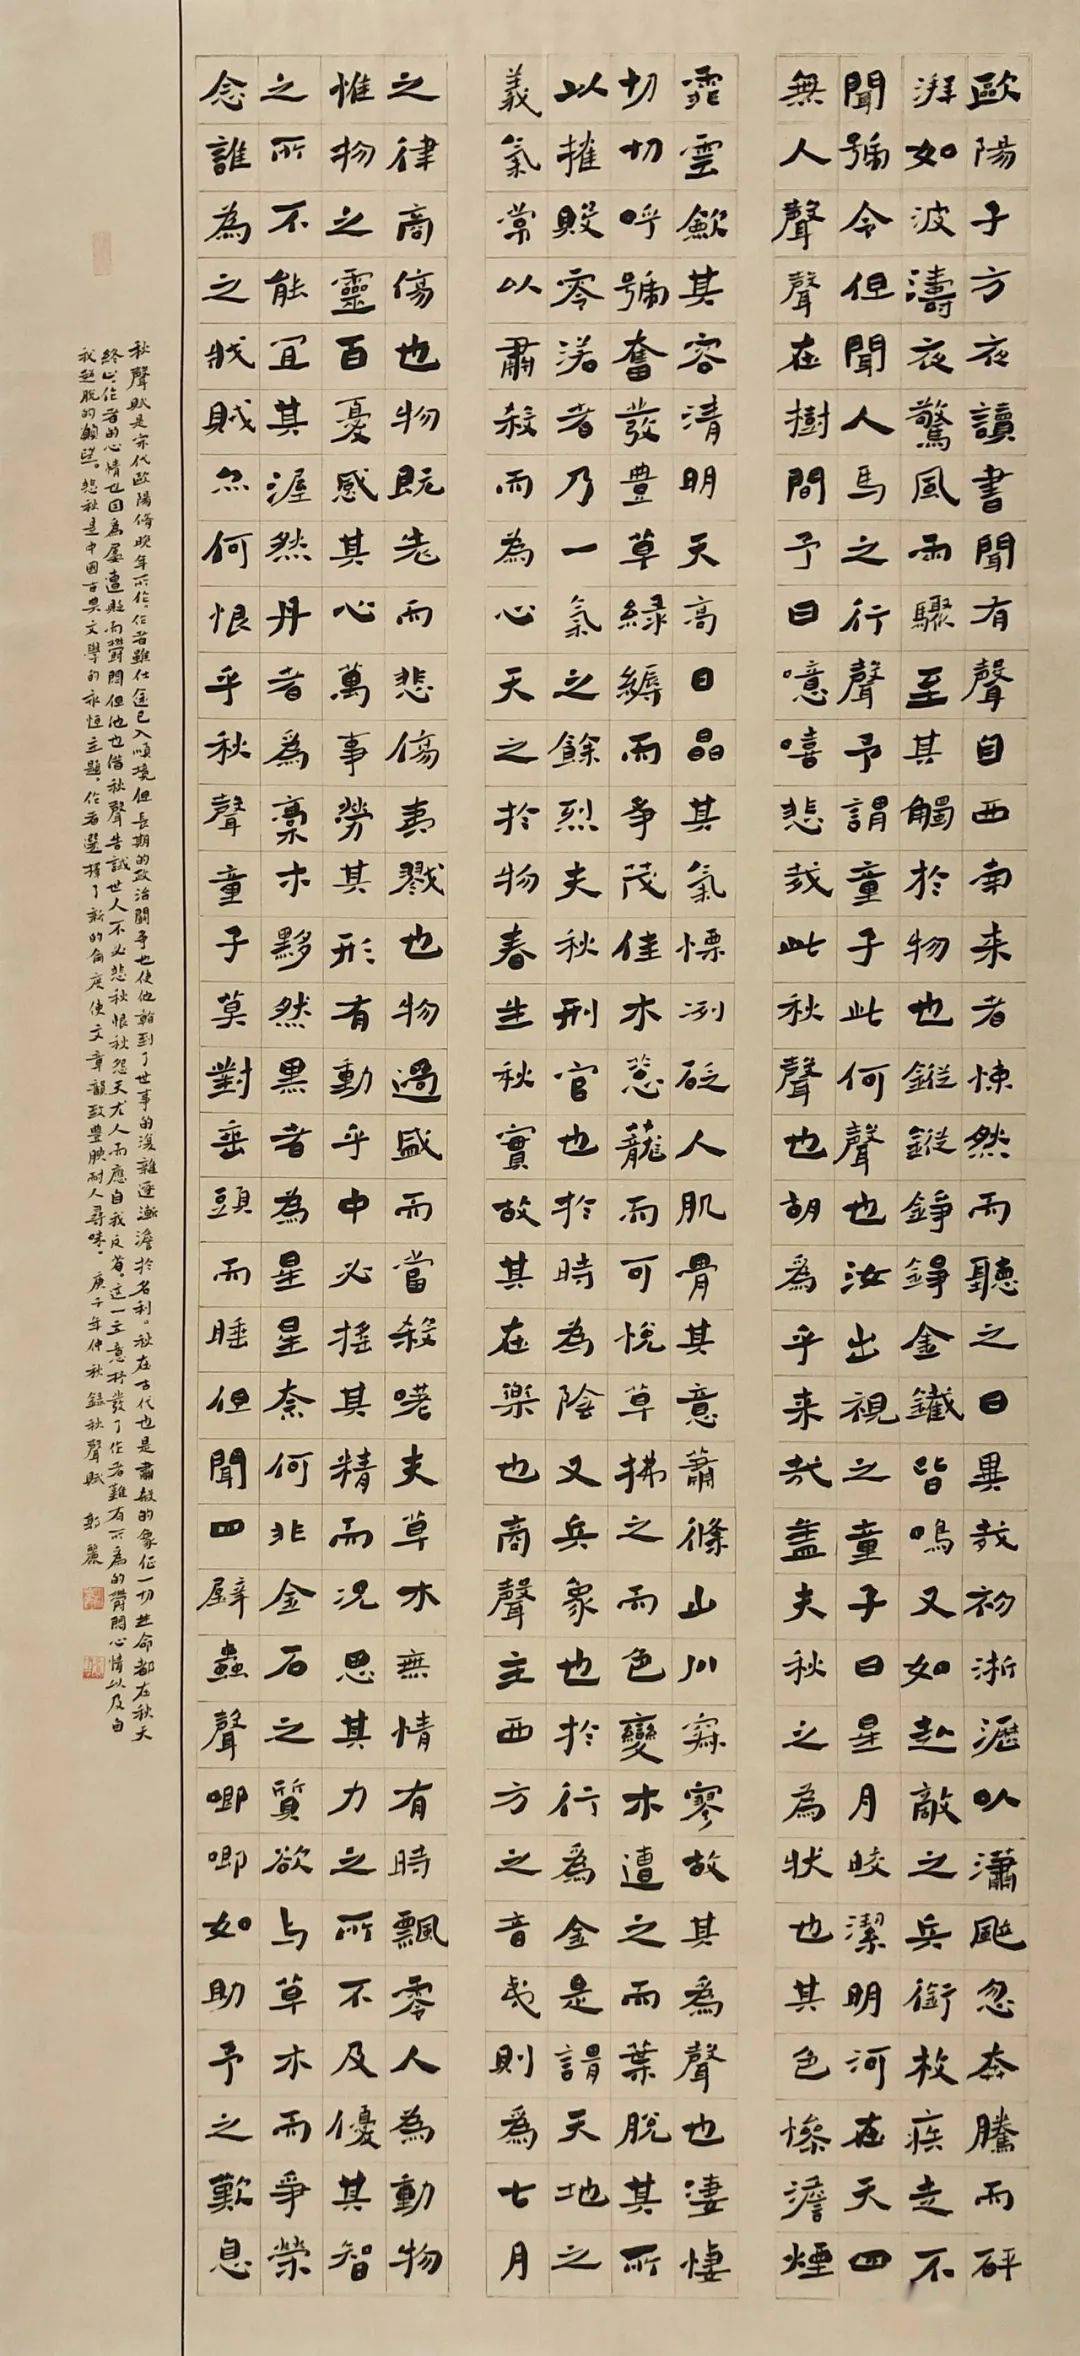 歐陽子方夜讀書聞有聲自西南来者悚然而聽之曰異哉初淅瀝以瀟颯忽奔騰而砰
湃如波濤夜驚風雨驟至其觸於物也鏦鏦錚錚金鐵皆鳴又如赴敵之兵銜枚疾走不
聞號令但聞人馬之行聲予謂童子此何聲也汝出視之童子曰星月皎潔明河在天四
無人聲聲在樹間予曰噫嘻悲哉此秋聲也胡為乎来哉蓋夫秋之為狀也其色慘澹煙
霏雲歛其容清明天高日晶其氣慄冽砭人肌骨其意蕭條山川寂寥故其為聲也淒悽
切切呼號奮發豐草緑縟而爭茂佳木蔥蘢而可悅草拂之而色變木遭之而葉脫其所
以摧敗零落者乃一氣之餘烈夫秋刑官也於時為陰又兵象也於行為金是謂天地之
義氣常以肅殺而為心天之於物春生秋實故其在樂也商聲主西方之音夷則為七月
之律商傷也物既老而悲傷夷戮也物過盛而當殺嗟夫草木無情有時飄零人為動物
惟物之靈百憂感其心萬事勞其形有動乎中必搖其精而況思其力之所不及優其智
之所不能宜其渥然丹者為槀木黟然黑者為星星奈何非金石之質欲与草木而爭榮
念誰為之戕賊亦何恨乎秋聲童子莫對垂頭而睡但聞四壁蟲聲唧唧如助予之歎息
秋聲賦是宋代歐陽脩晚年所作。作者雖仕途已入順境但長期的政治鬪爭也使他看到了世事的復雜逐漸澹於名利。秋在古代也是肅殺的象征一切生命都在秋天
終止。作者的心情也因為屢遭貶而鬱悶但他也借秋聲告誡世人不必悲秋恨秋怨天尤人而應自我反省。這一立意抒發了作者難有所為的鬱悶心情以及自
我超脫的願望。悲秋是中國古典文學的永恒主題。作者選擇了新的角度使文章龍致豐腴耐人尋味。庚子年仲秋錄秋聲賦 郭麗